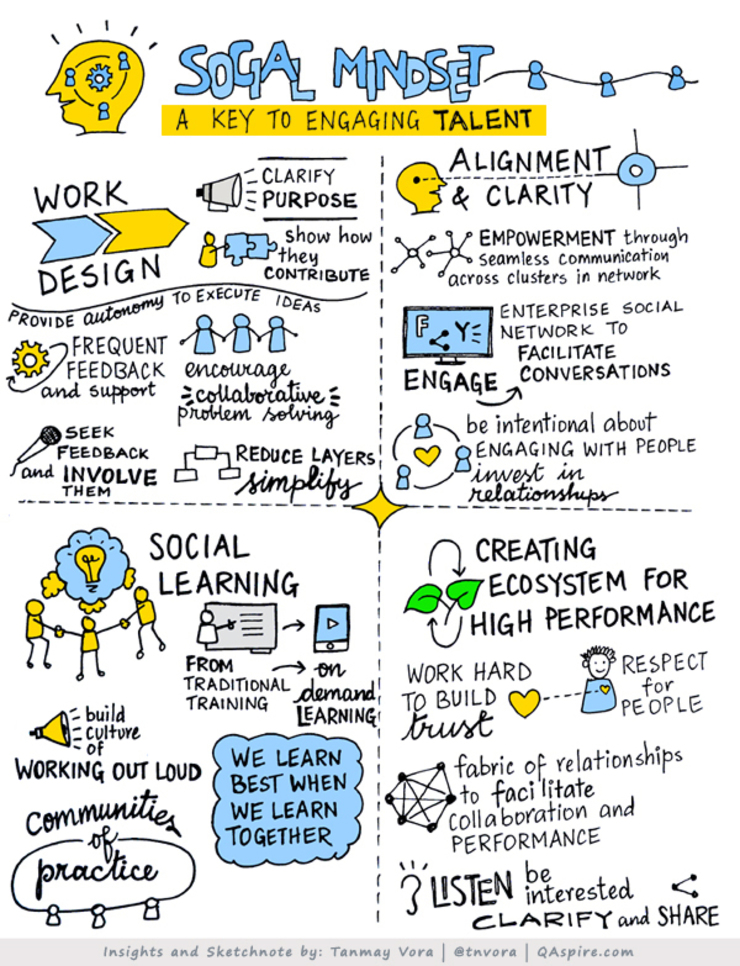 SOCIAL MINDSET
A KEY TO ENGAGING TALENT
WORK
DESIGN
CLARIFY
PURPOSE
show how
they
CONTRIBUTE
PROVIDE autonomy TO EXECUTE IDEAS
FREQUENT
FEEDBACK
and support
encourage
collaborative
problem solving
SEEK
FEEDBACK
and INVOLVE
THEM
REDUCE LAYERS
simplify
ALIGNMENT
& CLARITY
EMPOWERMENT through
seamless communication
across clusters in network
F Y
ENTERPRISE SOCIAL
NETWORK TO
FACILITATE
CONVERSATIONS
ENGAGE
be intentional about
ENGAGING WITH PEOPLE
invest in
relationships
SOCIAL
LEARNING
FROM
TRADITIONAL
TRAINING
on
demand
LEARNING
build
culture
of
WORKING OUT LOUD
communities
of
practice
WE LEARN
BEST WHEN
WE LEARN
TOGETHER
CREATING
ECOSYSTEM FOR
HIGH PERFORMANCE
WORK HARD
TO BUILD
trust
RESPECT
for
PEOPLE
fabric of relationships
to facilitate
collaboration and
PERFORMANCE
LISTEN be
interested
CLARIFY and SHARE
Insights and Sketchnote by: Tanmay Vora | @tnvora | QAspire.com